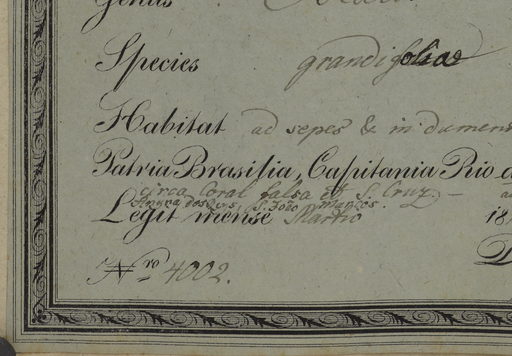 Genus
Species grandifoliae
Habitat ad sepes & in dumen
Patria Brasilia, Capitania Rio d
circa Coral falso et S. Cruz
S. João Marcos.
Legit mense Martio 18
Nro 4002.